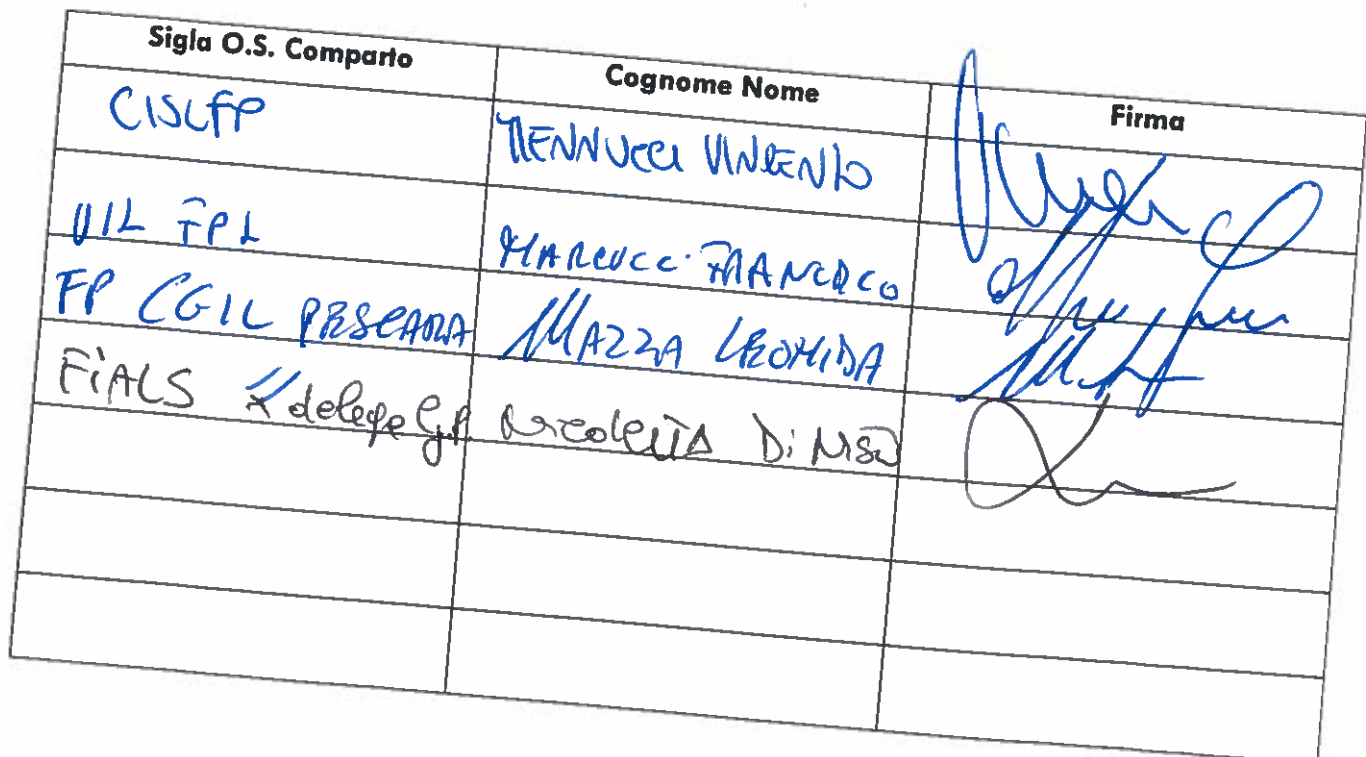 Sigla O.S. Comparto Cognome Nome Firma
CISLFP MENNUCCI VINCENZO
UIL FPL MARCUCCI FRANCESCO
FP CGIL PESCARA MAZZA LEONIDA
FIALS delega G.P. Nicoletta Di Nisio